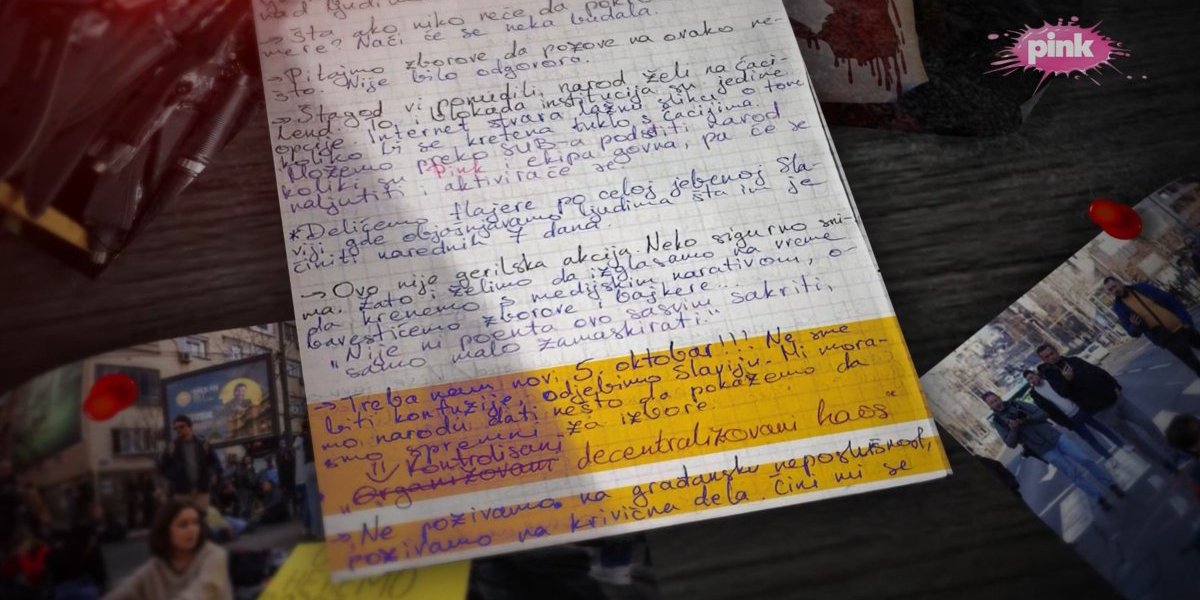 nad ljudima
→ Šta ako niko neće da
mere? Naći će se neka budala.
→ Pitajmo zborove da pozove na ovako ne-
što. Nije bilo odgovora.
→ Štagod vi ponudili, narod želi na Ćaci-
lend. To i blokada institucija su jedine
opcije. Internet stvara lažnu sliku o tome
koliko bi se kretena tuklo s ćacijima.
Možemo preko SUB-a podsetiti narod
koliki su Pink i ekipa govna, pa će se
naljutiti i aktiviraće se.
*Delićemo flajere po celoj jebenoj Sla-
viji gde objašnjavamo ljudima šta im je
činiti narednih 7 dana.
→ Ovo nije gerilska akcija. Neko sigurno sni-
ma. Zato i želimo da izglasamo na vreme
da krenemo s medijskim narativom, o-
bavestićemo zborove i bajkere...
"Nije ni poenta ovo sasvim sakriti,
samo malo zamaskirati."
→ Treba nam novi 5. oktobar!!! Ne sme
biti konfuzije, odjebimo Slaviju. Mi mora-
mo narodu dati nešto da pokažemo da
smo spremni za izbore.
Kontrolisani
"Organizovani decentralizovani haos"
→ Ne pozivamo na građansku neposlušnost,
pozivamo na krivična dela. Čini mi se
pink